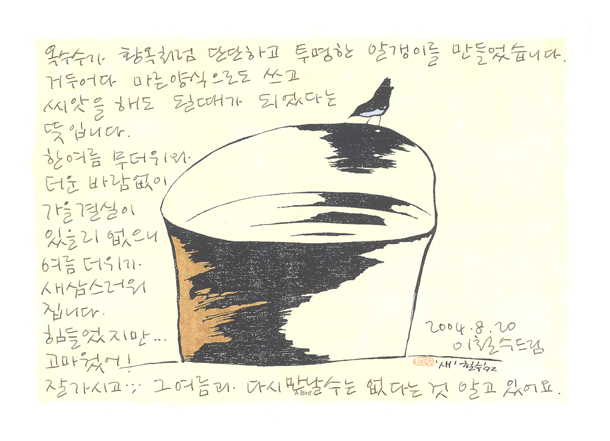 옥수수가 황옥처럼 단단하고 투명한 알갱이를 만들었습니다.
거두어다 마른양식으로도 쓰고
씨앗을 해도 될때가 되었다는
뜻입니다.
한여름 무더위와
더운 바람없이
가을결실이
있을리 없으니
여름더위가
새삼스러워
집니다.
힘들었지만...
고마웠어!
잘가시고... 그여름과 다시만날수는 없다는것 알고 있어요.
2004.8.20
이철수드림
'새' 철수 92
A Bird